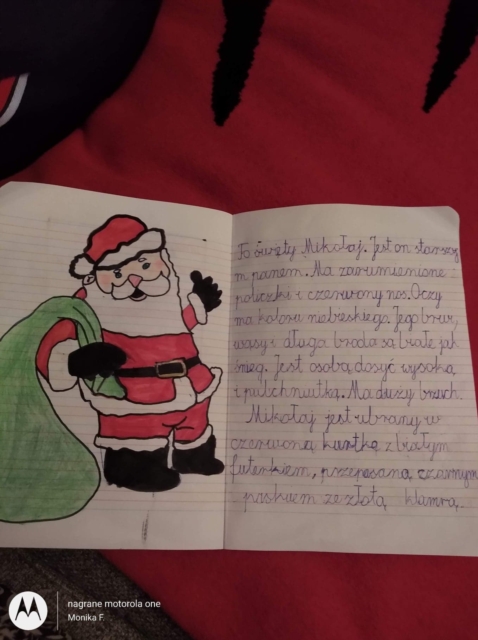 To święty Mikołaj. Jest on starszy
m panem. Ma zarumienione
policzki i czerwony nos. Oczy
ma koloru niebieskiego. Jego brwi,
wąsy i długa broda są białe jak
śnieg. Jest osobą dosyć wysoką
i pulchniutką. Ma duży brzuch.
Mikołaj jest ubrany w
czerwoną kurtkę z białym
futerkiem, przepasaną czarnym
paskiem ze złotą klamrą.
nagrane motorola one
Monika F.